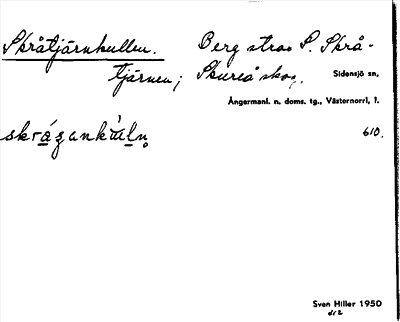 Skråtjärnkullen. Berg strax S. Skrå-
tjärnen; Skureå skog. Sidensjö sn,
Ångermanl. n. doms. tg., Västernorrl, l.
610.
Sven Hiller 1950